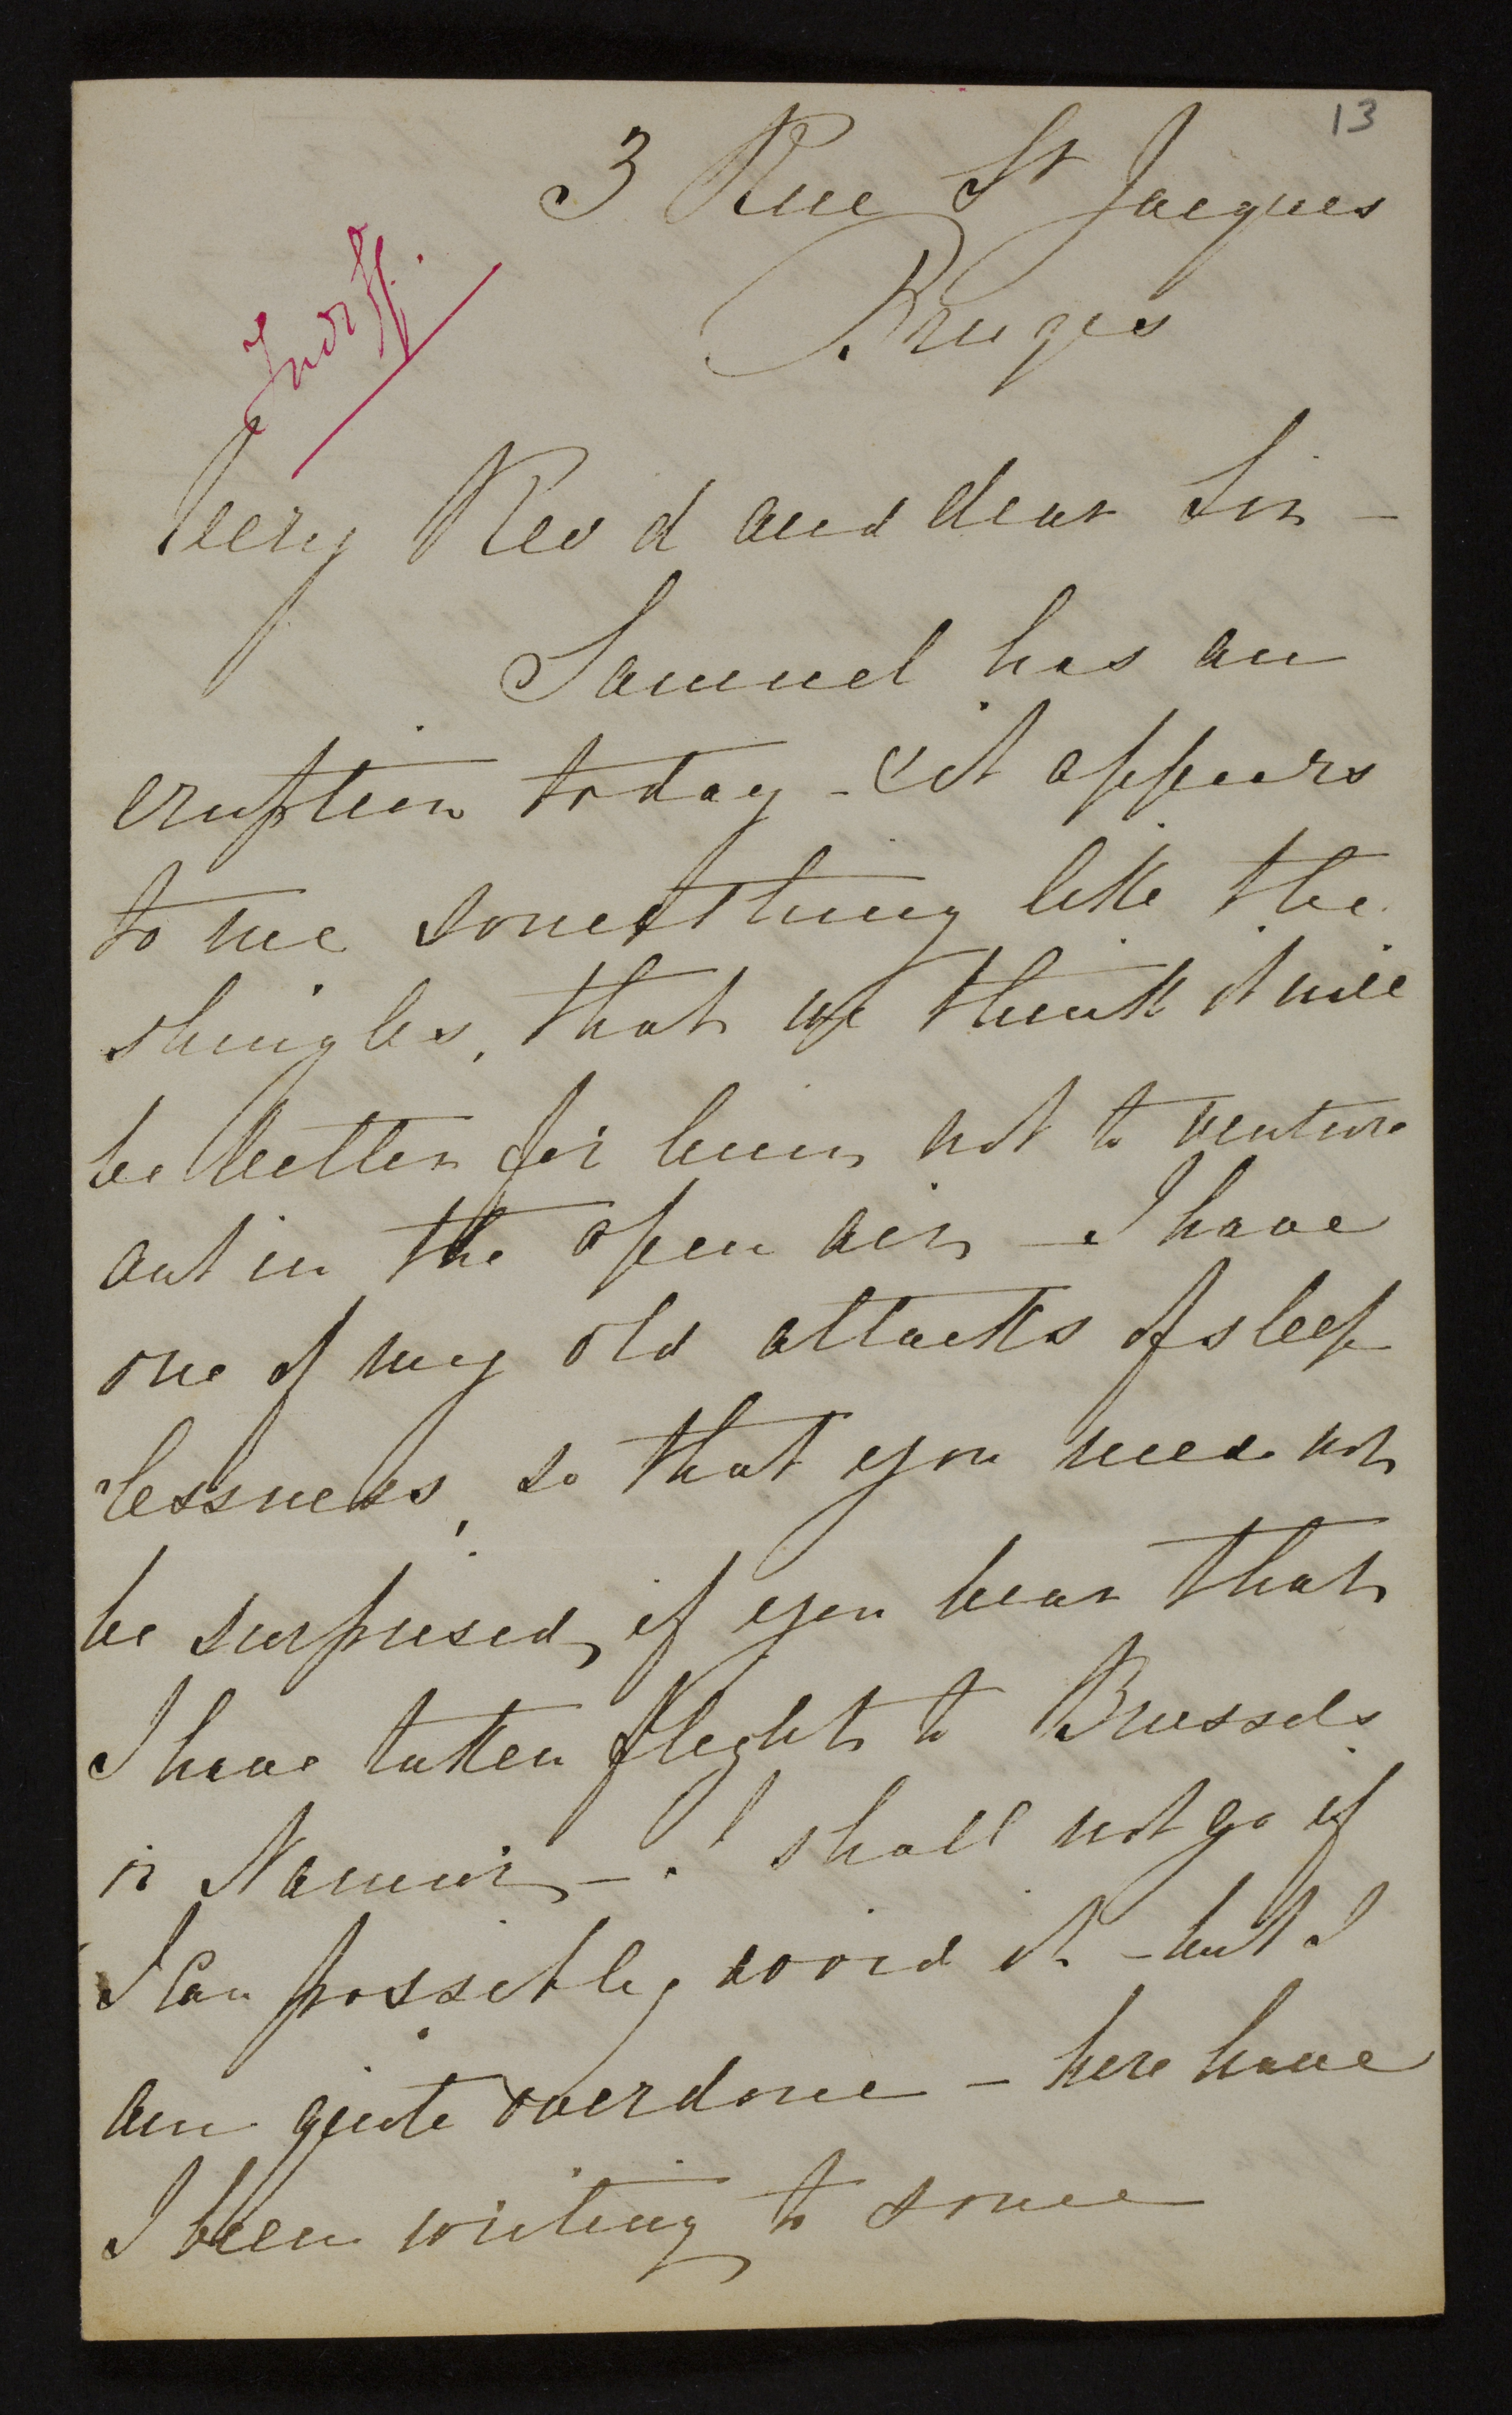 13
3 Rue St Jacques
Bruges
Very Revd and dear Sir -
Samuel has an
eruption today - it appears
to me something like the
shingles, that we think it will
be better for him not to venture
out in the open air - I have
one of my old attacks of sleep
lessness, so that you need not
be surprised if you hear that
I have taken flight to Brussels
or Namur - I shall not go if
I can possibly avoid it - but I
am quite overdone - here have
I been writing to some